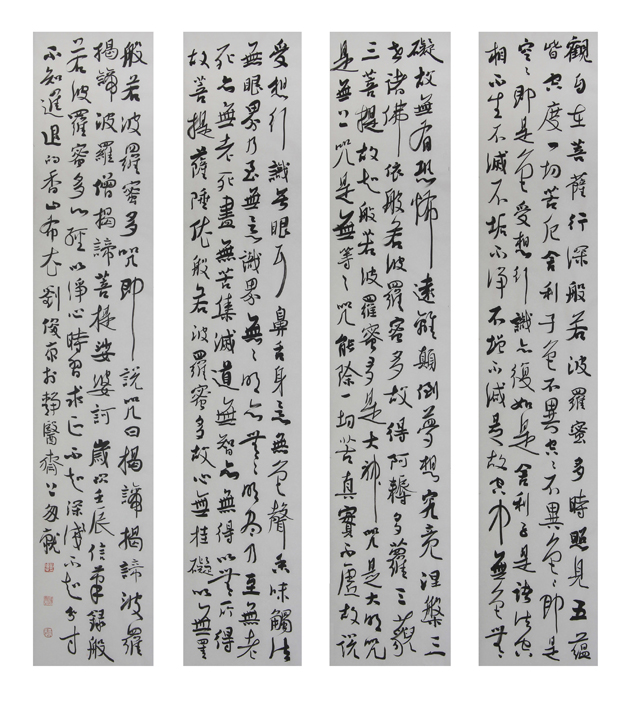 觀自在菩薩行深般若波羅蜜多時照見五蘊
皆空度一切苦厄舍利子色不異空空不異色色即是
空空即是色受想行識亦復如是舍利子是諸法空
相不生不滅不垢不淨不增不減是故空中無色無
礙故無有恐怖遠離顛倒夢想究竟涅槃三
世諸佛依般若波羅蜜多故得阿耨多羅三藐
三菩提故知般若波羅蜜多是大神咒是大明咒
是無上咒是無等等咒能除一切苦真實不虛故說
受想行識無眼耳鼻舌身意無色聲香味觸法
無眼界乃至無意識界無無明亦無無明盡乃至無老
死亦無老死盡無苦集滅道無智亦無得以無所得
故菩提薩埵依般若波羅蜜多故心無挂礙以無罣
般若波羅蜜多咒即說咒曰揭諦揭諦波羅
揭諦波羅僧揭諦菩提娑婆訶 歲次壬辰信筆錄般
若波羅蜜多心經以淨心時習求正不知深淺不知分寸
不知進退的香山布衣劉俊京於靜醫齋